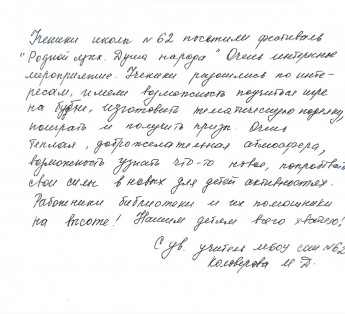 Ученики школы №62 посетили фестиваль
"Родной язык. Душа народа" Очень интересное
мероприятие. Ученики разошлись по инте-
ресам, имели возможность поучиться игре
на бубне, изготовить тематическую поделку,
поиграть и получить призы. Очень
теплая, доброжелательная атмосфера,
возможность узнать что-то новое, попробовать
свои силы в новых для детей активностях.
Работники библиотеки и их помощники
на высоте! Нашим детям всего хватило!
С ув. учитель МБОУ СОШ №62
М Д.